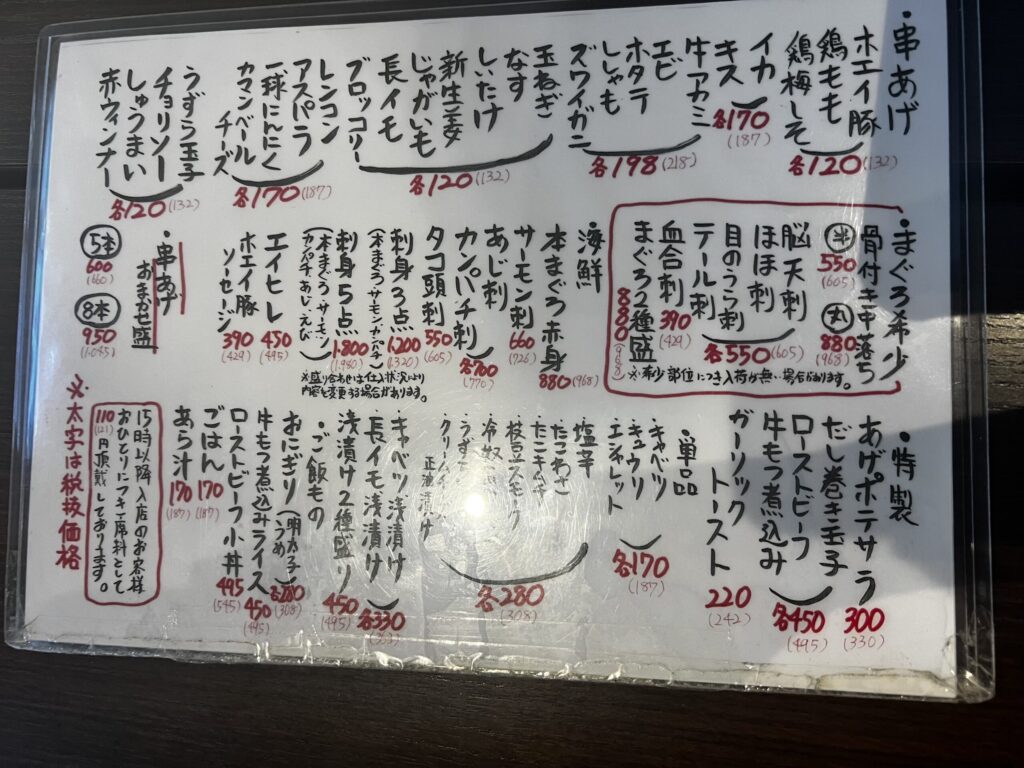 ・串あげ
ホエイ豚
鶏もも
鶏梅しそ
各120(132)
イカ
キス
各170
(187)
牛アカミ
エビ
ホタテ
ししゃも
ズワイガニ
各198(218)
玉ねぎ
なす
しいたけ
新生姜
じゃがいも
長イモ
ブロッコリー
各120(132)
レンコン
アスパラ
一球にんにく
カマンベール
チーズ
各170(187)
うずら玉子
チョリソー
しゅうまい
赤ウィンナー
各120(132)
・まぐろ希少
骨付き中落ち
半 550
(605)
丸 880
(968)
脳天刺
ほほ刺
目のうら刺
テール刺
各550(605)
血合刺 390
(429)
まぐろ2種盛
880(968)
※希少部位につき入荷が無い場合があります。
海鮮
本まぐろ赤身
880(968)
サーモン刺
660
(726)
あじ刺
カンパチ刺
各700
(770)
タコ頭刺
550
(605)
刺身3点
(本まぐろ・サーモン・カンパチ)
1,200
(1,320)
刺身5点
(本まぐろ・サーモン・
カンパチ・あじ・えび)
1,800
(1,980)
※盛り合わせは仕入状況により
内容を変更する場合があります。
エイヒレ
450
(495)
ホエイ豚
ソーセージ
390
(429)
・串あげ
おまかせ盛
5本
600
(660)
8本
950
(1,045)
・特製
あげポテサラ
300
(330)
だし巻き玉子
ローストビーフ
牛もつ煮込み
各450
(495)
ガーリック
トースト
220
(242)
・単品
・キャベツ
・キュウリ
・エシャレット
各170
(187)
・塩辛
・たこわさ
・たこキムチ
・枝豆スモーク
・冷奴
・うずら
・クリームチーズ
各280
(308)
・キャベツ浅漬け
・長イモ浅漬け
各330
浅漬け2種盛り
450
(495)
・ご飯もの
おにぎり(明太子・うめ)
各280
(308)
牛もつ煮込みライス
450
(495)
ローストビーフ小丼
495
(545)
ごはん 170
(187)
あら汁 170
(187)
15時以降入店のお客様
おひとりにつき席料として
110(121)円頂戴しております。
※太字は税抜価格